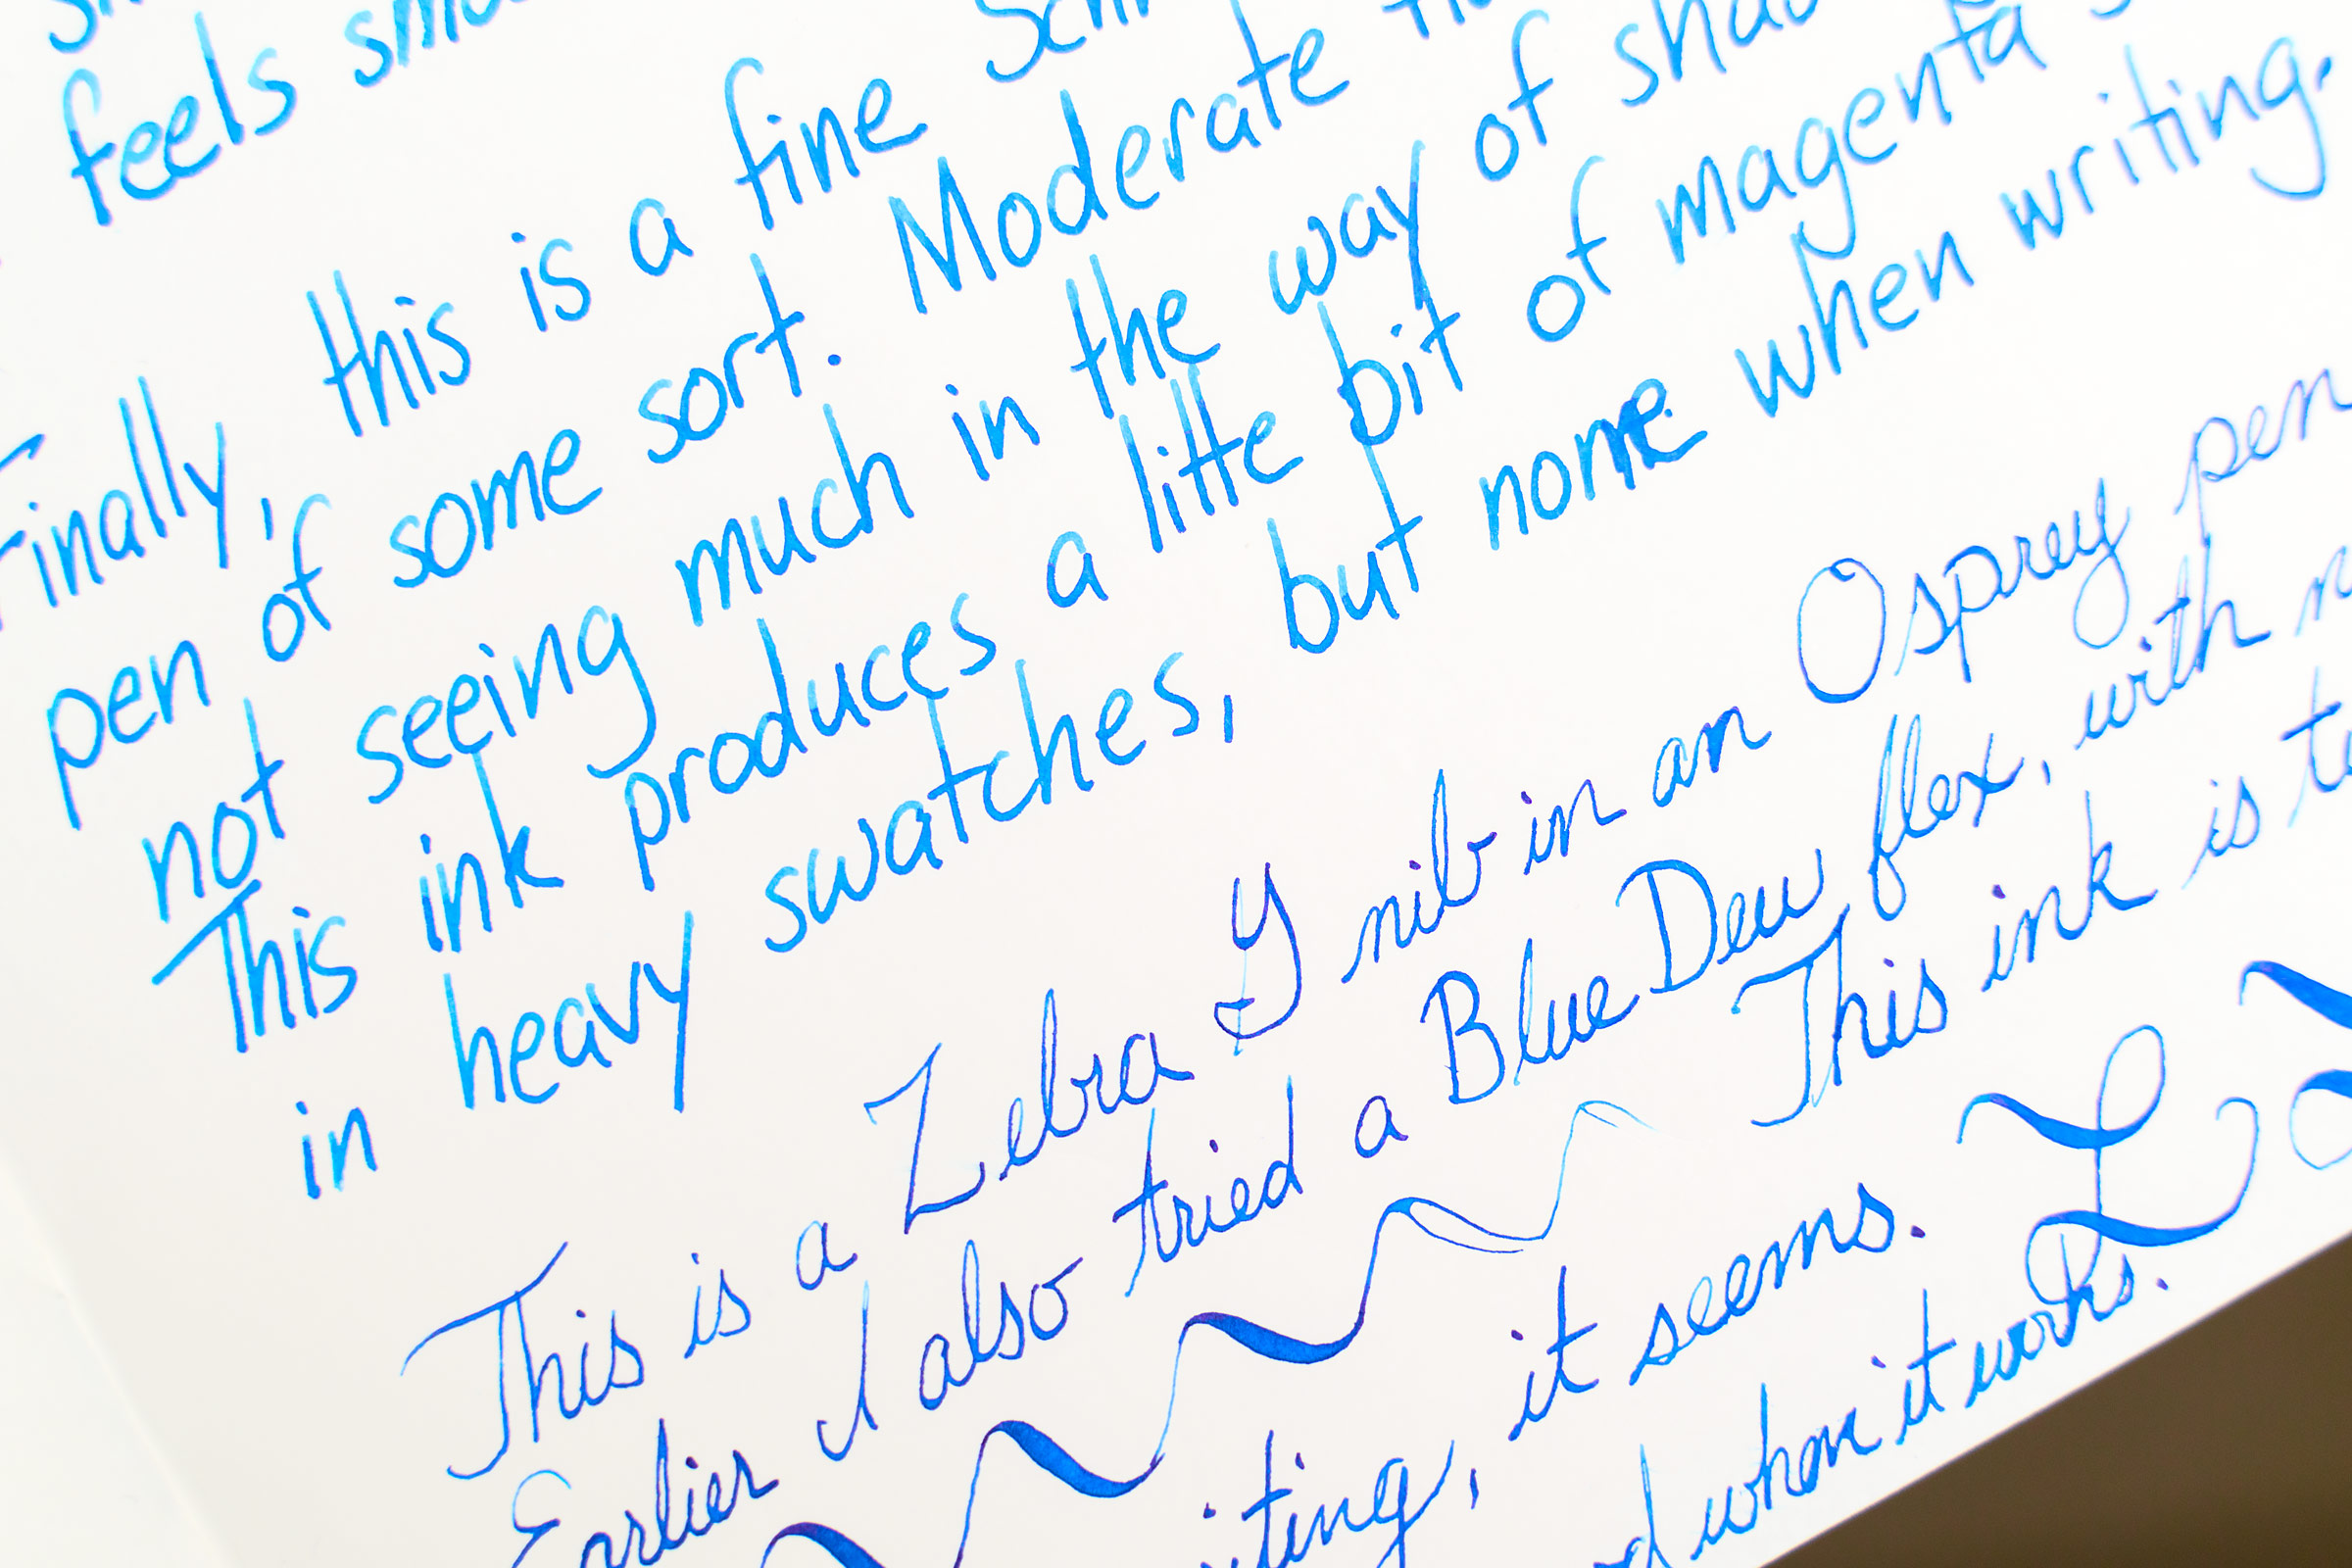 feels smo
Finally, this is a fine Schm
pen of some sort. Moderate
not seeing much in the way of shad
This ink produces a little bit of magenta s
in heavy swatches, but none when writing.
This is a Zebra G nib in an Osprey pen
Earlier I also tried a Blue Dew flex, with
This ink is
iting, it seems.
d when it works.